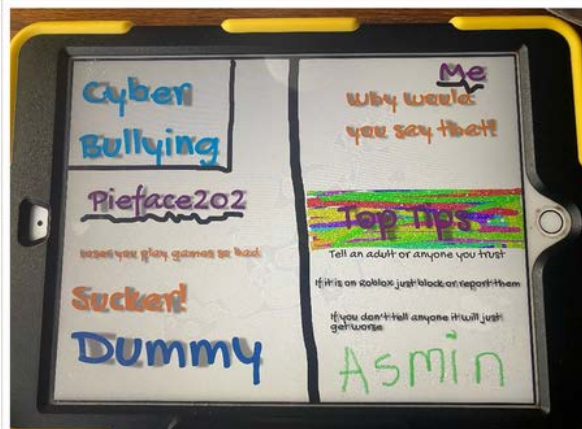 Cyber
Bullying
Pieface202
loser you play games so bad
Sucker!
Dummy
Me
Why would
you say that!
Top Tips
Tell an adult or anyone you trust
If it is on Roblox just block or report them
If you don't tell anyone it will just
get worse
Asmin